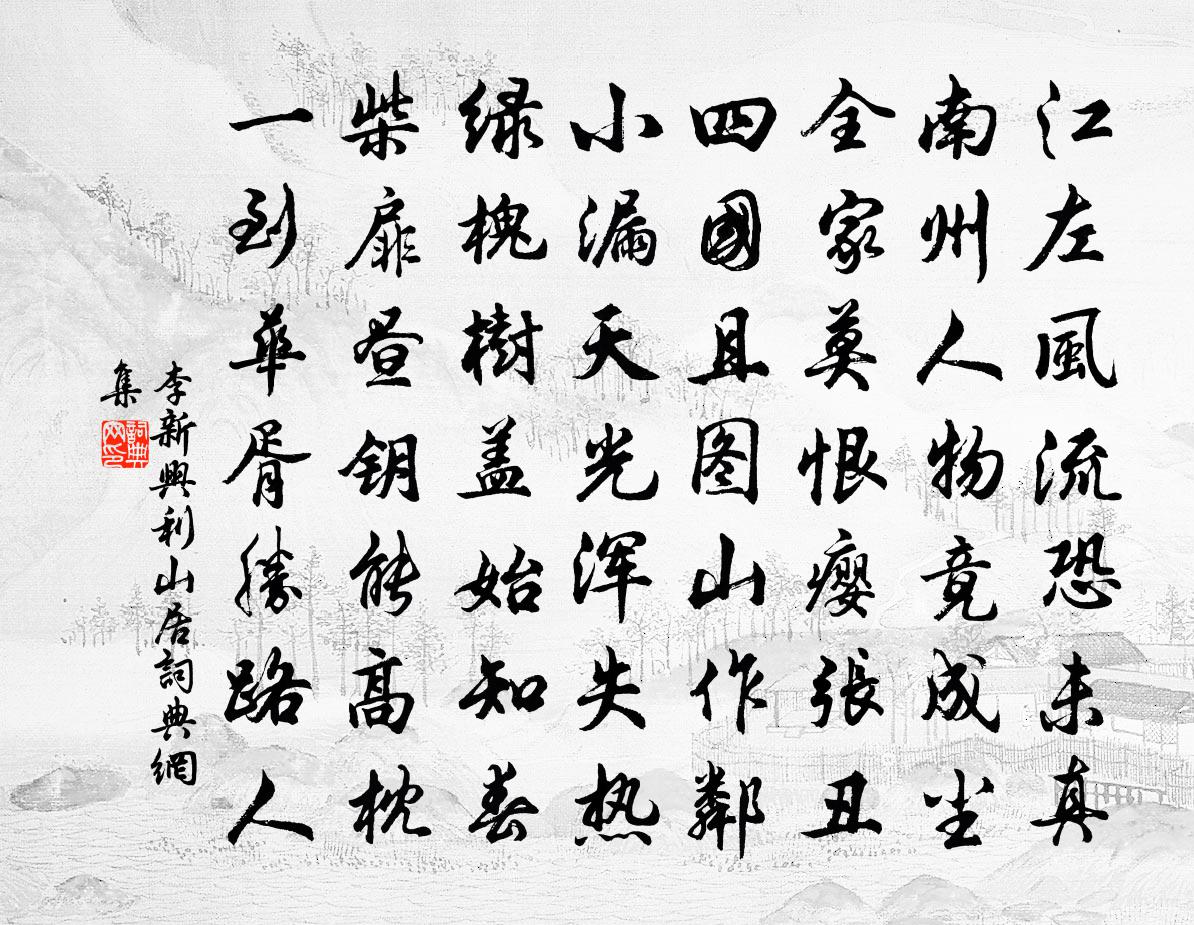 江左風流恐未真
南州人物竟成尘
全家莫恨瘿張丑
四國且图山作鄰
小漏天光浑失热
绿槐樹盖始知春
柴扉昼钥能高枕
一到華胥勝路人
李新興利山居詞典網
集
詞典
网印